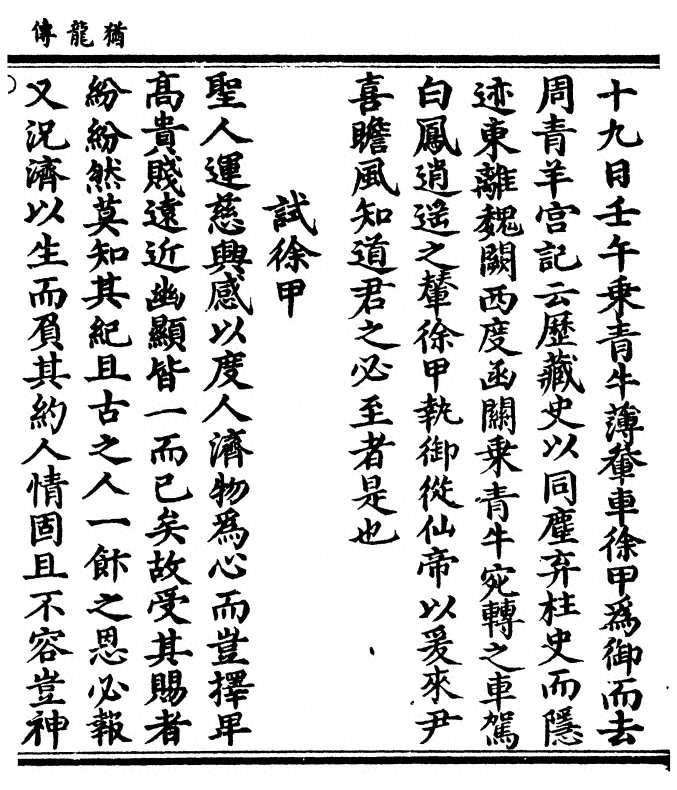 猶龍傳
十九日壬午乗青牛薄軬車徐甲爲御而去
周青羊宫記云歷藏史以同塵弃柱史而隱
迹東離魏闕西度函關乗青牛宛轉之車駕
白鳳逍遥之輦徐甲執御從仙帝以爰來尹
喜瞻風知道君之必至者是也
試徐甲
聖人運慈興感以度人濟物爲心而豈擇卑
高貴賤遠近幽顯皆一而已矣故受其賜者
紛紛然莫知其紀且古之人一飰之恩必報
又况濟以生而負其約人情固且不容豈神